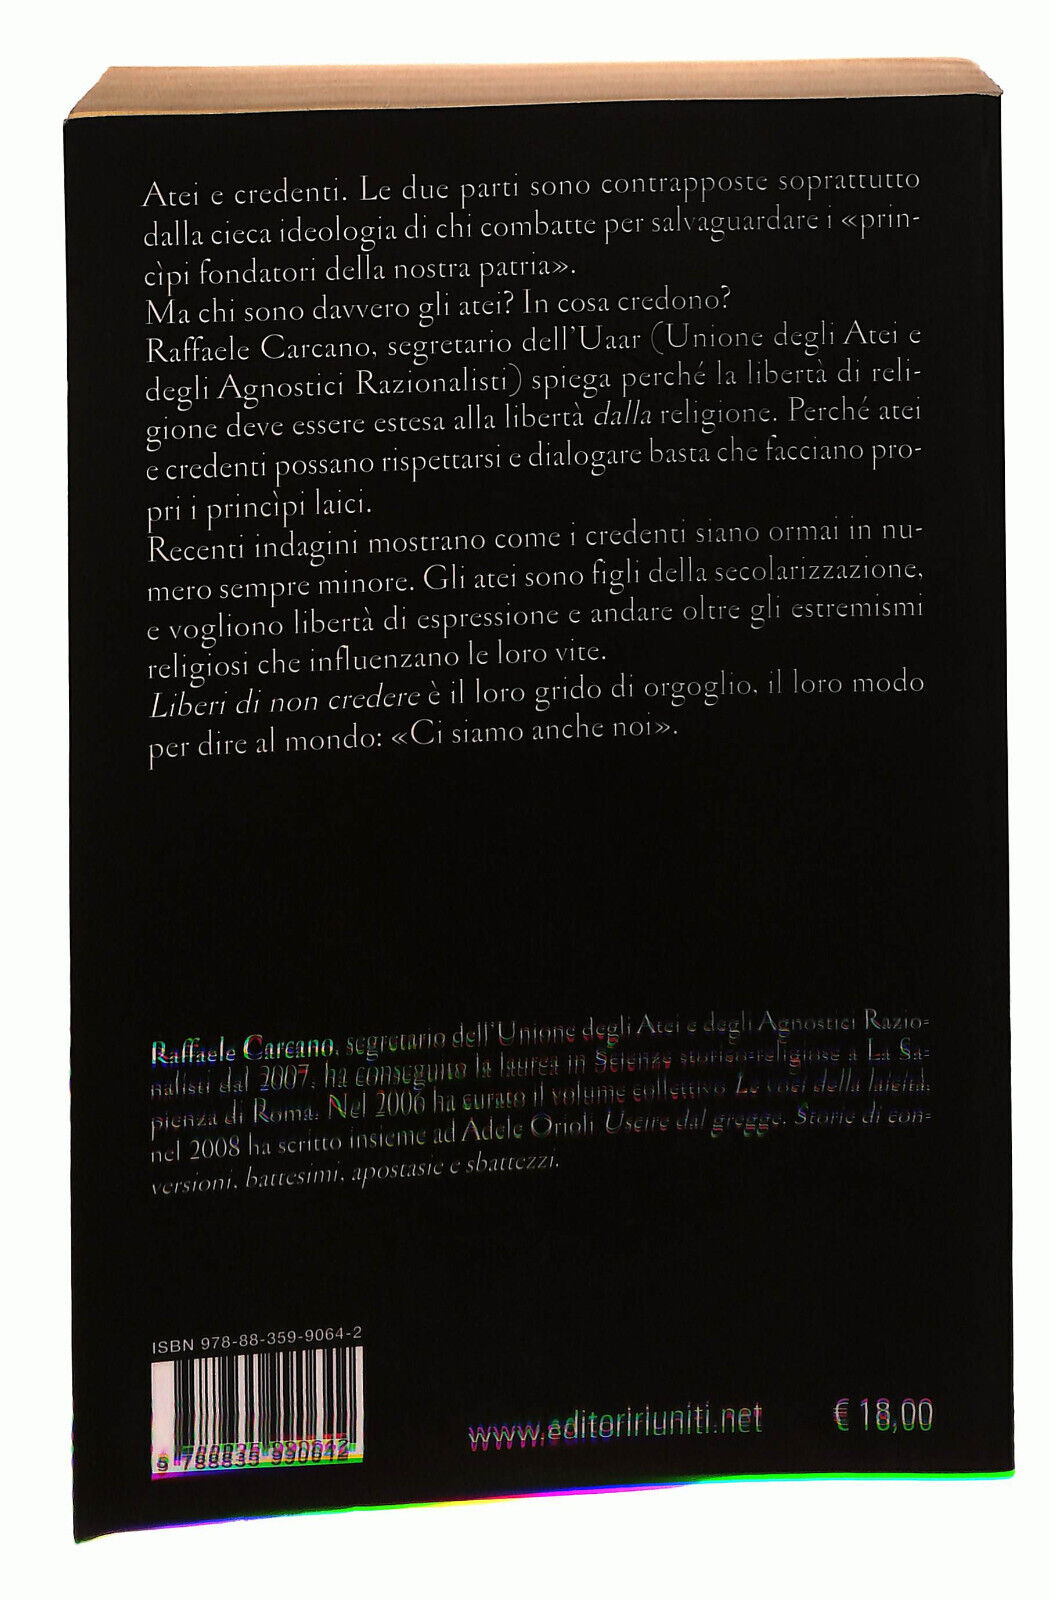 Atei e credenti. Le due parti sono contrapposte soprattutto
dalla cieca ideologia di chi combatte per salvaguardare i «prin-
cìpi fondatori della nostra patria».
Ma chi sono davvero gli atei? In cosa credono?
Raffaele Carcano, segretario dell'Uaar (Unione degli Atei e
degli Agnostici Razionalisti) spiega perché la libertà di reli-
gione deve essere estesa alla libertà dalla religione. Perché atei
e credenti possano rispettarsi e dialogare basta che facciano pro-
pri i princìpi laici.
Recenti indagini mostrano come i credenti siano ormai in nu-
mero sempre minore. Gli atei sono figli della secolarizzazione,
e vogliono libertà di espressione e andare oltre gli estremismi
religiosi che influenzano le loro vite.
Liberi di non credere è il loro grido di orgoglio, il loro modo
per dire al mondo: «Ci siamo anche noi».
Raffaele Carcano, segretario dell'Unione degli Atei e degli Agnostici Razio-
nalisti dal 2007, ha conseguito la laurea in Scienze storico-religiose a La Sa-
pienza di Roma. Nel 2006 ha curato il volume collettivo Le voci della laicità,
nel 2008 ha scritto insieme ad Adele Orioli Uscire dal gregge. Storie di con-
versioni, battesimi, apostasie e sbattezzi.
ISBN 978-88-359-9064-2
9 788835 990642
www.editoririuniti.net
€ 18,00